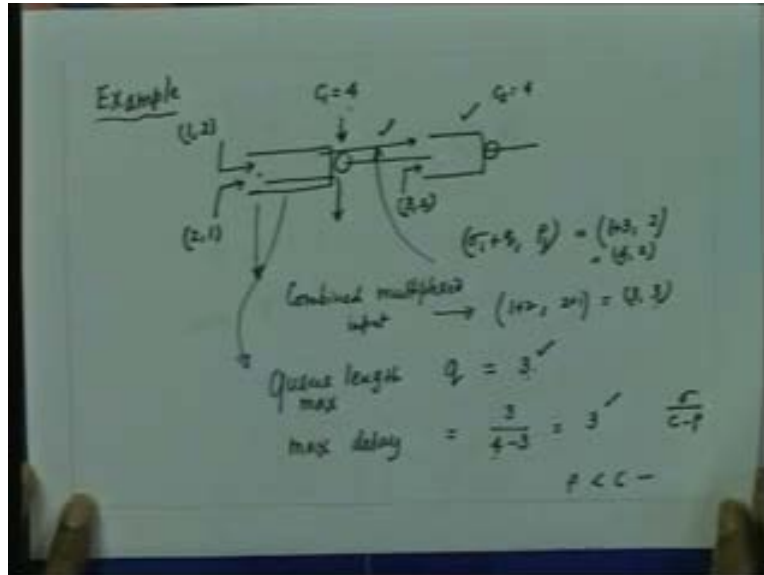 Example
C₁ = 4
C₂ = 4
(1,2)
(2,1)
(σ₁+q, ρ₁) = (1+3, 2)
= (4, 2)
Combined multiplexed input → (1+2, 2+1) = (3, 3)
Queue length q = 3 ✓
max
max delay = 3/(4-3) = 3 ✓ σ/(C-ρ)
ρ < C -